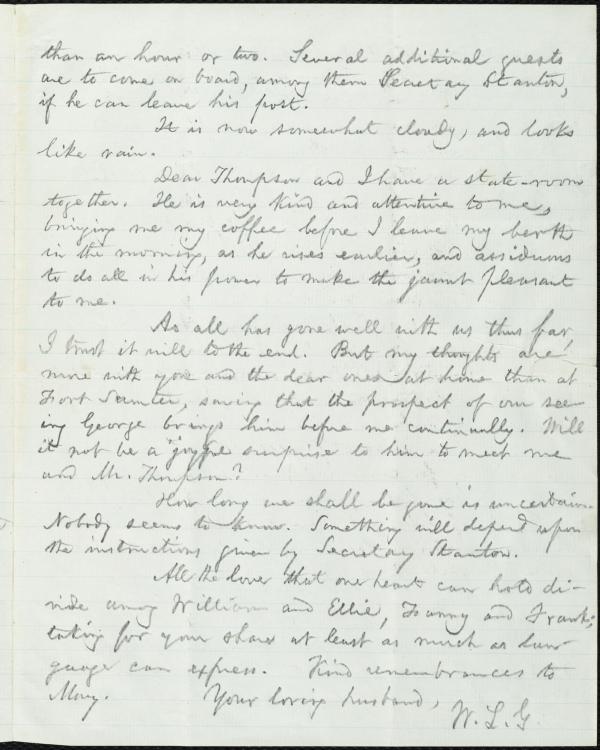 than an hour or two. Several additional guests
are to come on board, among them Secretary Stanton,
if he can leave his post.
It is now somewhat cloudy, and looks
like rain.
Dear Thompson and I have a state-room
together. He is very kind and attentive to me,
bringing me my coffee before I leave my berth
in the morning, as he rises earlier, and assiduous
to do all in his power to make the jaunt pleasant
to me.
As all has gone well with us thus far,
I trust it will to the end. But my thoughts are
more with you and the dear ones at home than at
Fort Sumter, saving that the prospect of our see-
ing George brings him before me continually. Will
it not be a joyful surprise to him to meet me
and Mr. Thompson?
How long we shall be gone is uncertain.
Nobody seems to know. Something will depend upon
the instructions given by Secretary Stanton.
All the love that one heart can hold di-
vide among William and Ellie, Fanny and Frank;
taking for your share at least as much as lan-
guage can express. Kind remembrances to
Mary. Your loving husband,
W. L. G.